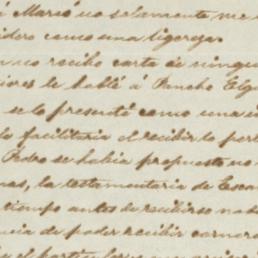 á Mario no solamente me
sidero como una ligereza.
recibo carta de ningun
iores le hablé á Pancho Elgu
se lo presenté como una
la facilitaria el recibir lo per
Pedro se habia propuesto no
nas, la testamentaria de Esca
tiempo antes de recibirse na
cia de poder recibir
el